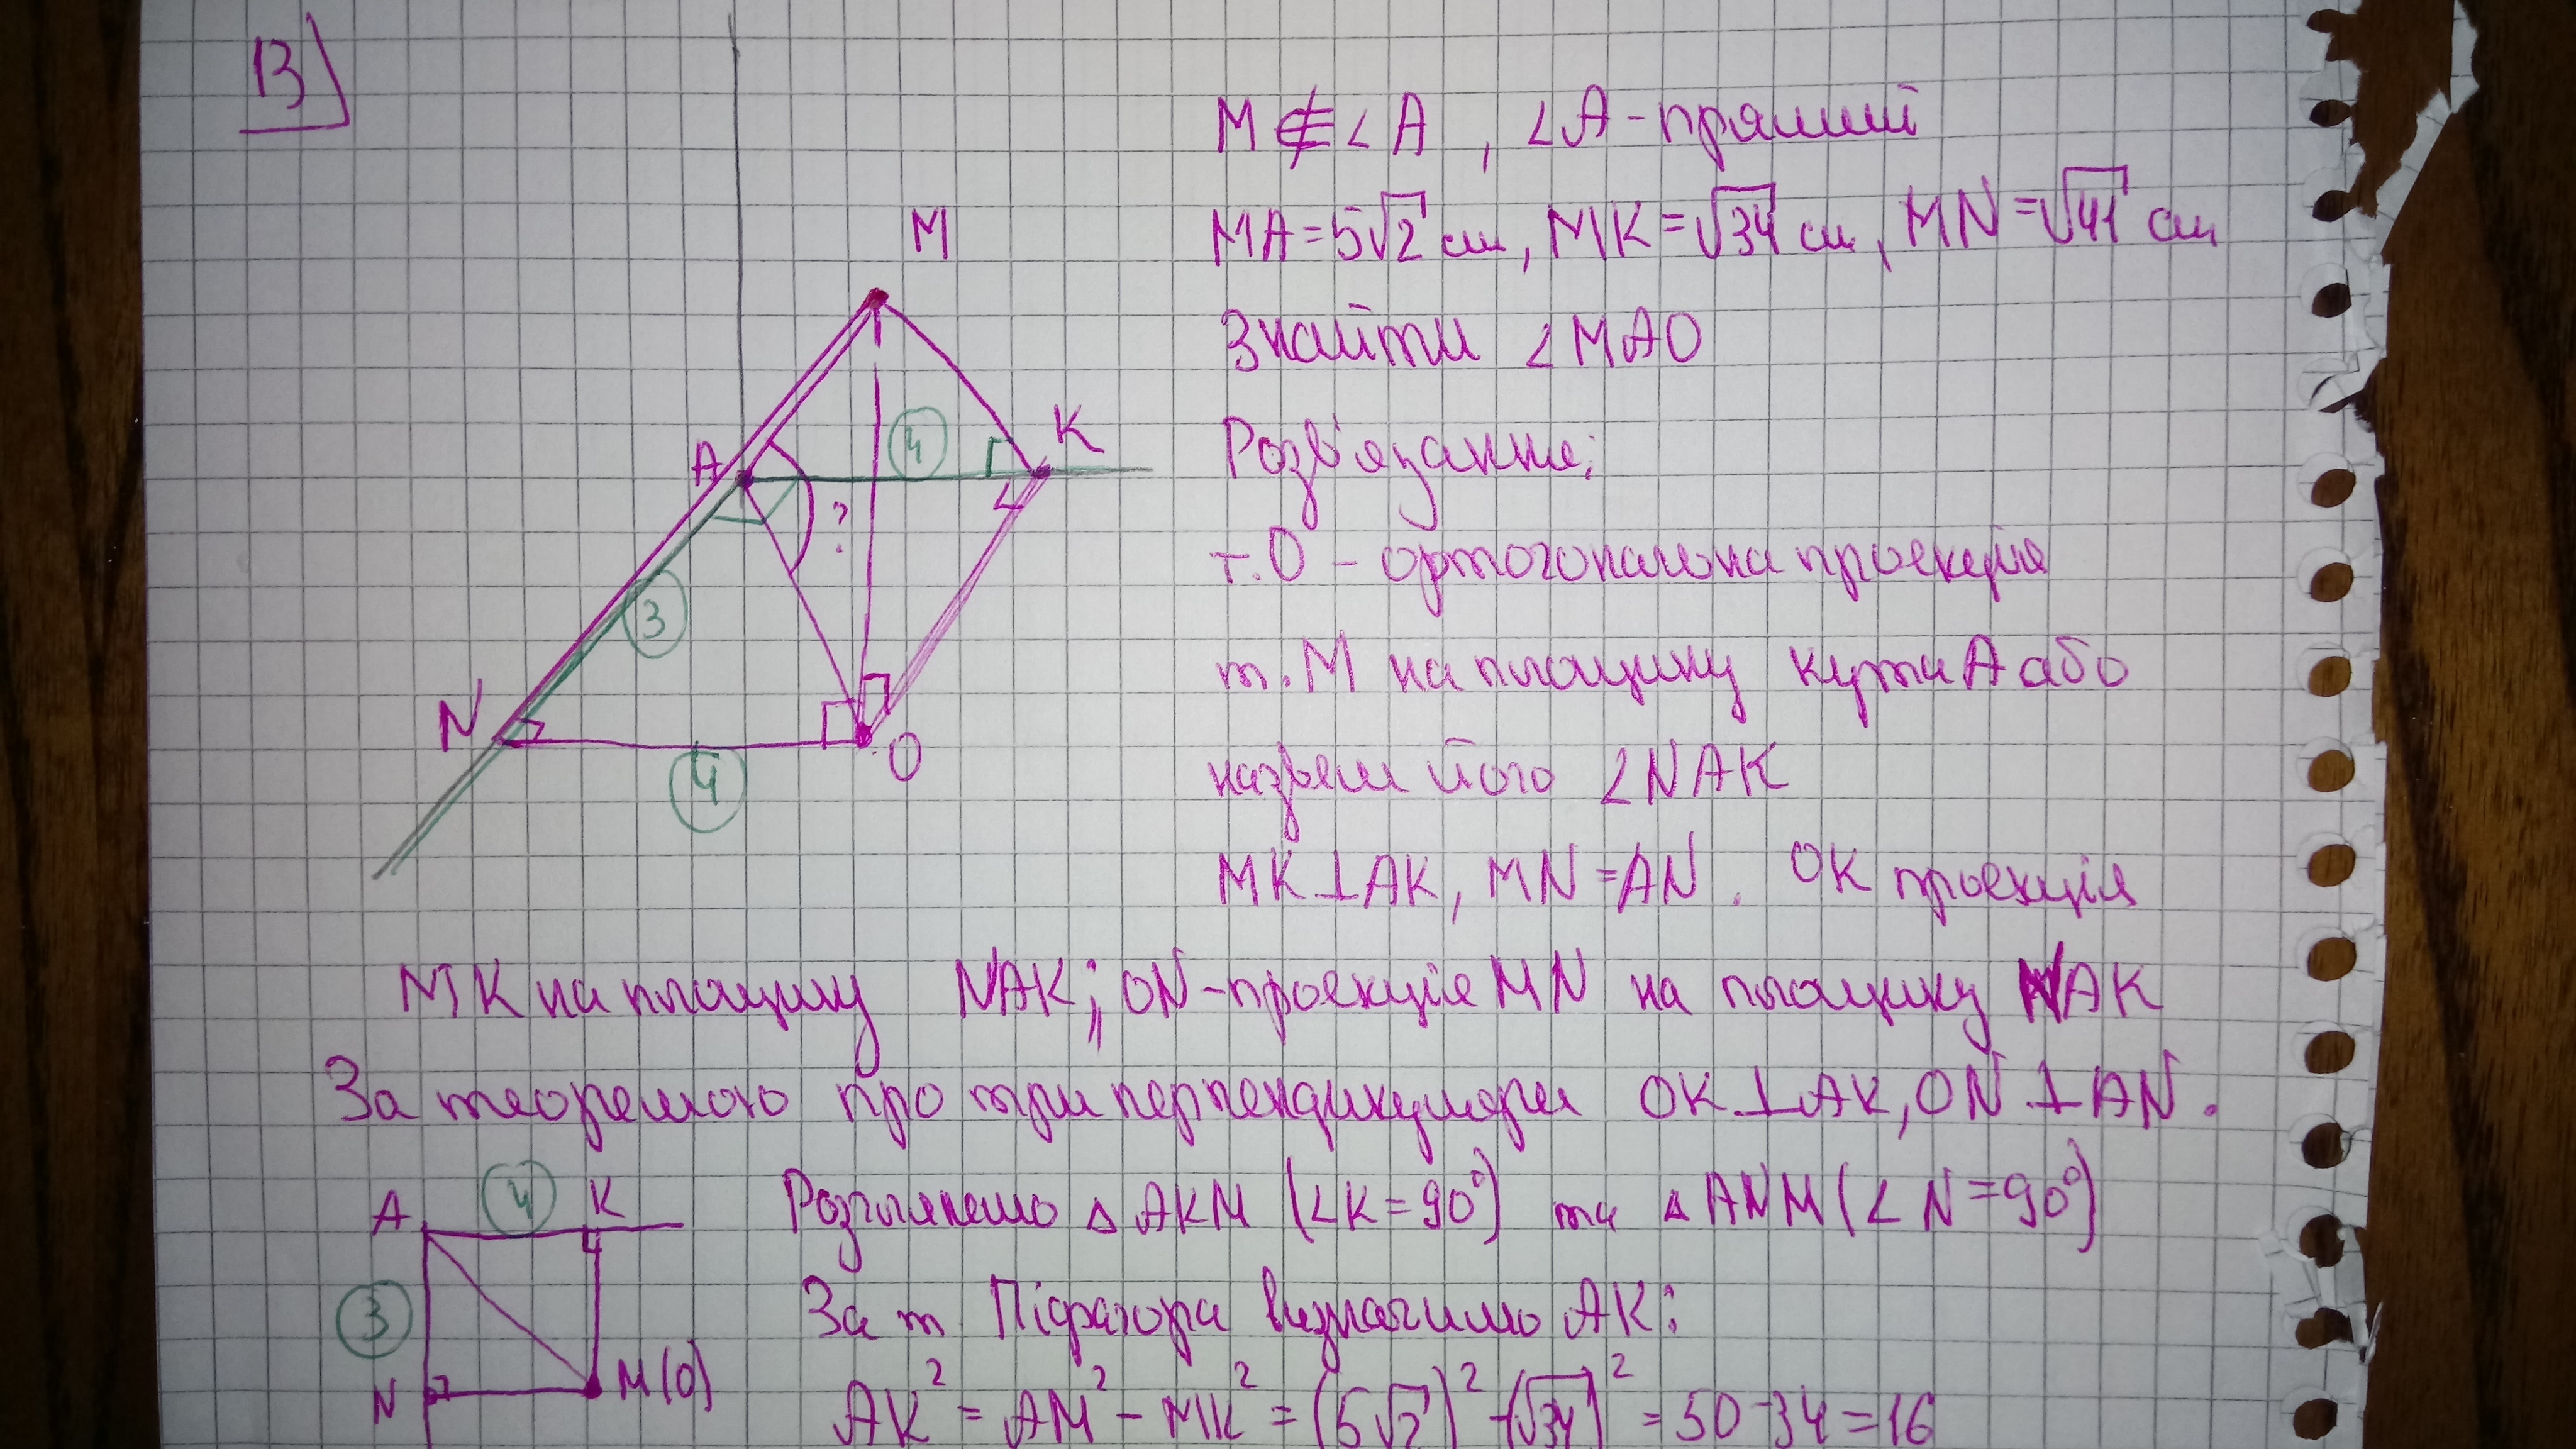 13
M ∉ ∠A , ∠A - прямий
MA = 5√2 см, MK = √34 см, MN = √41 см
Знайти ∠MAO
Розв'язання:
т. O - ортогональна проекція
т. M на площину кута A або
назвем його ∠NAK
MK ⊥ AK, MN = AN. OK проекція
MK на площину NAK; ON - проекція MN на площину NAK
За теоремою про три перпендикуляри OK ⊥ AK, ON ⊥ AN.
Розглянемо △ AKM (∠K = 90°) та △ ANM (∠N = 90°)
За т Піфагора визначимо AK:
AK² = AM² - MK² = (5√2)² - (√34)² = 50 - 34 = 16
M
A
4
K
?
3
N
4
O
A
4
K
3
N
M(O)